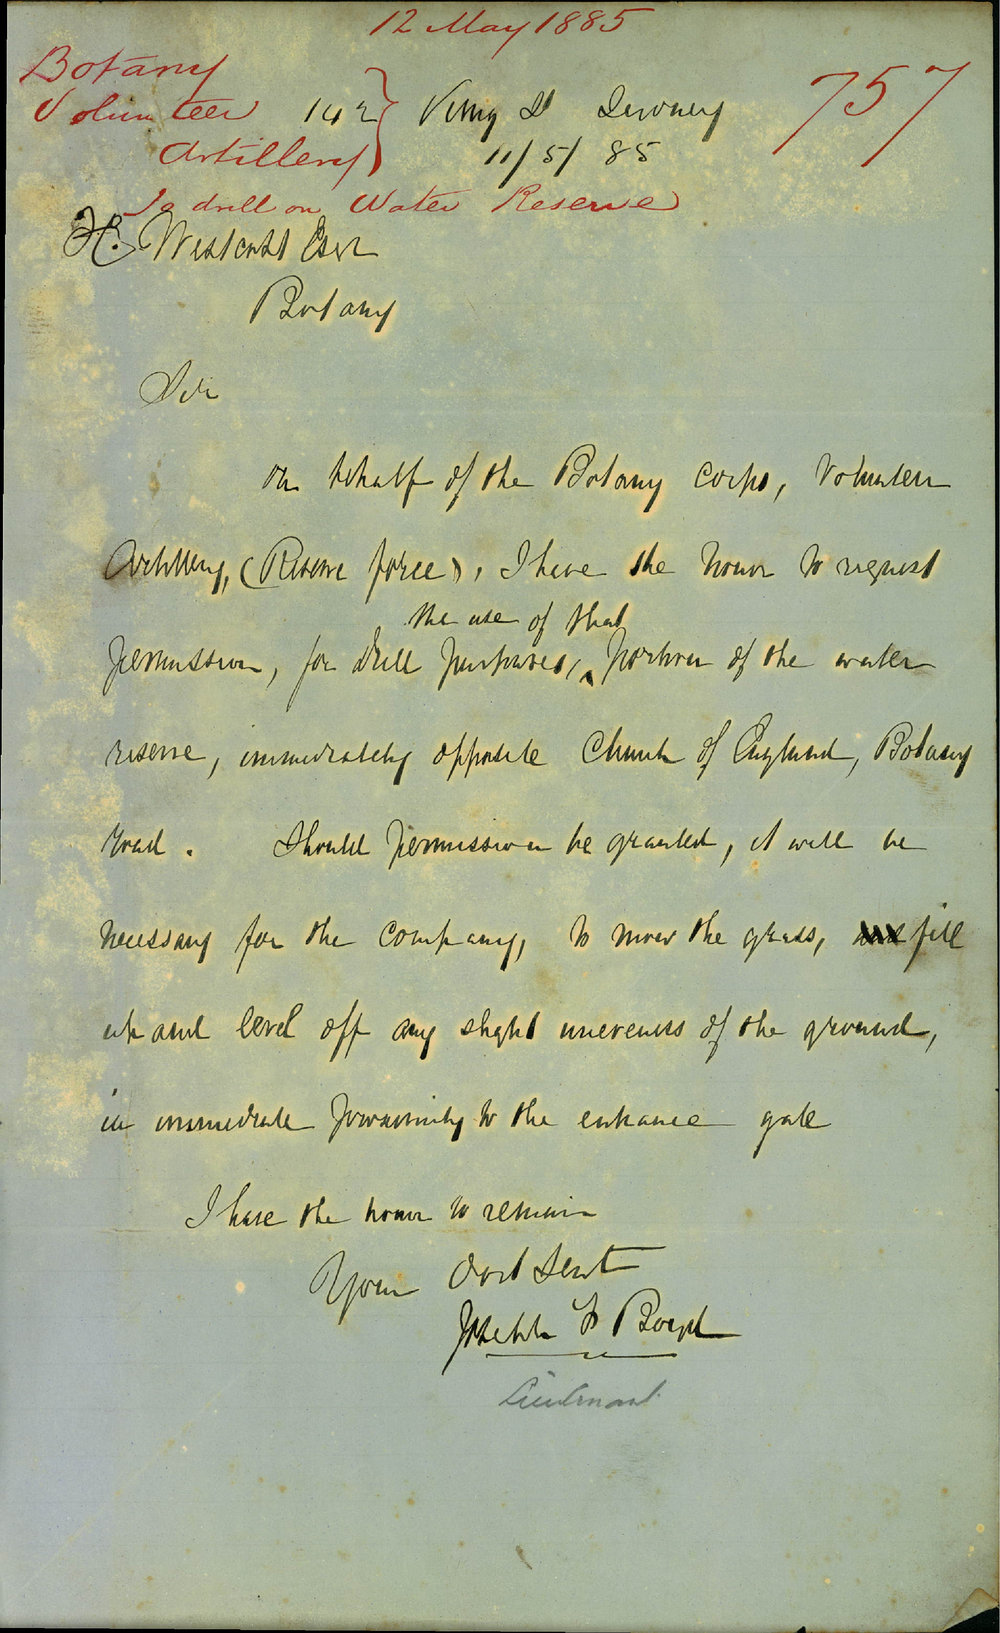 12 May 1885
Botany
Volunteer 142
757
Artillery
11/5/85
To drill on Water Reserve
H. Westcott Esqr
Botany
Sir
On behalf of the Botany Corps, Volunteer
Artillery, (Reserve force), I have the honor to request
the use of that
permission, for drill purposes, portion of the water
reserve, immediately opposite Church of England, Botany
road. Should permission be granted, it will be
necessary for the company, to mow the grass, fill
up and level off any slight uneveness of the ground,
in immediate proximity to the entrance gate
I have the honor to remain
Your Obdt Servt
Joseph F Boyd
Lieutenant